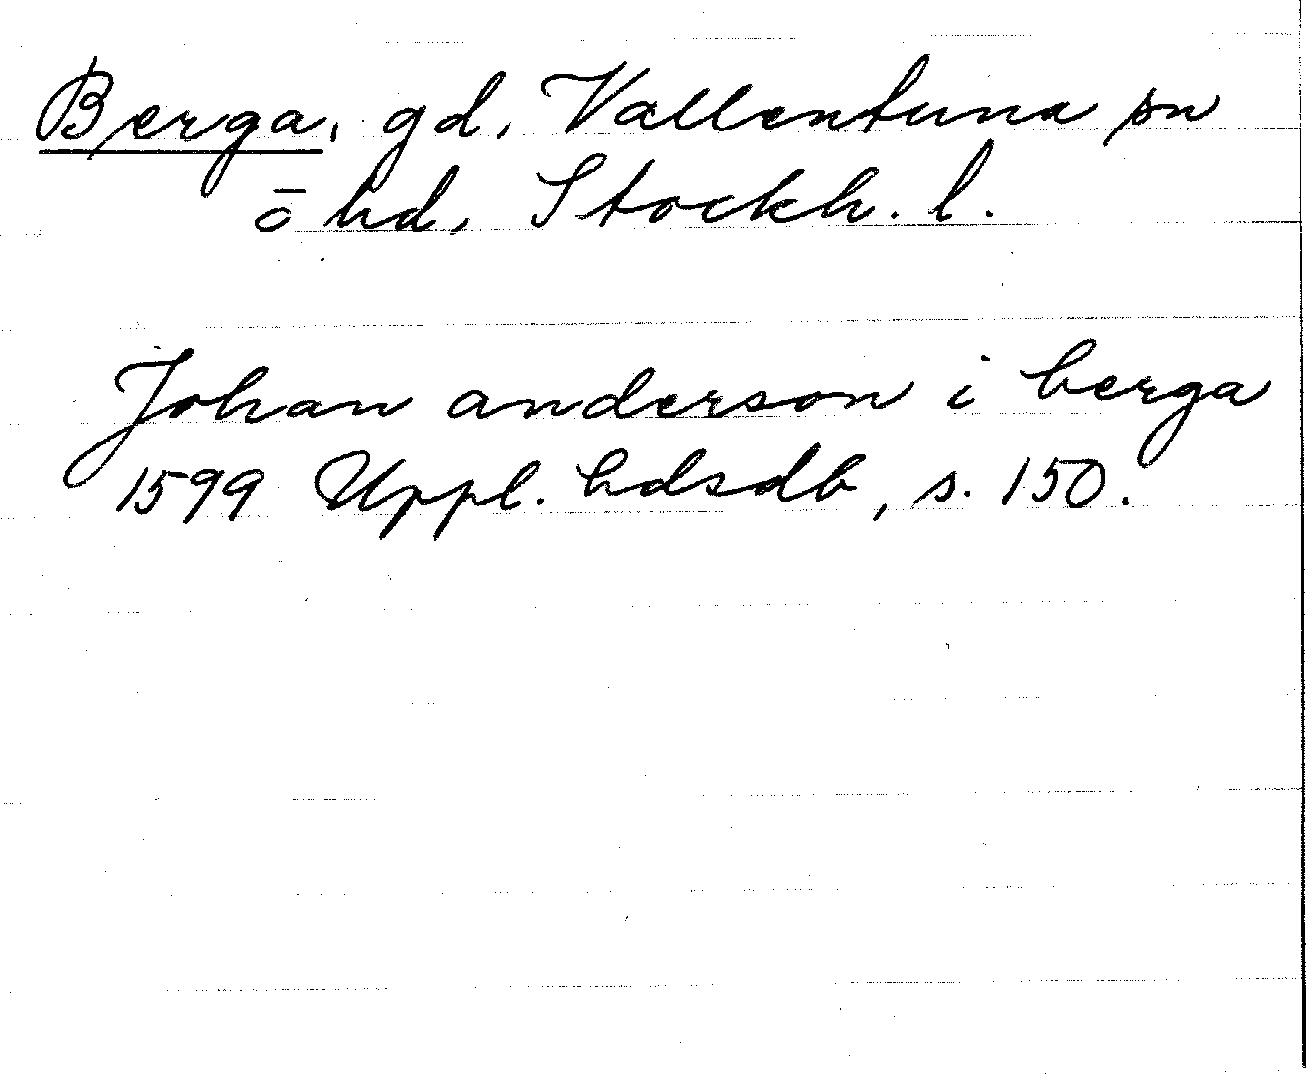 Berga, gd, Vallentuna sn
o hd, Stockh. l.
Johan anderson i berga
1599 Uppl. hdsdb, s. 150.